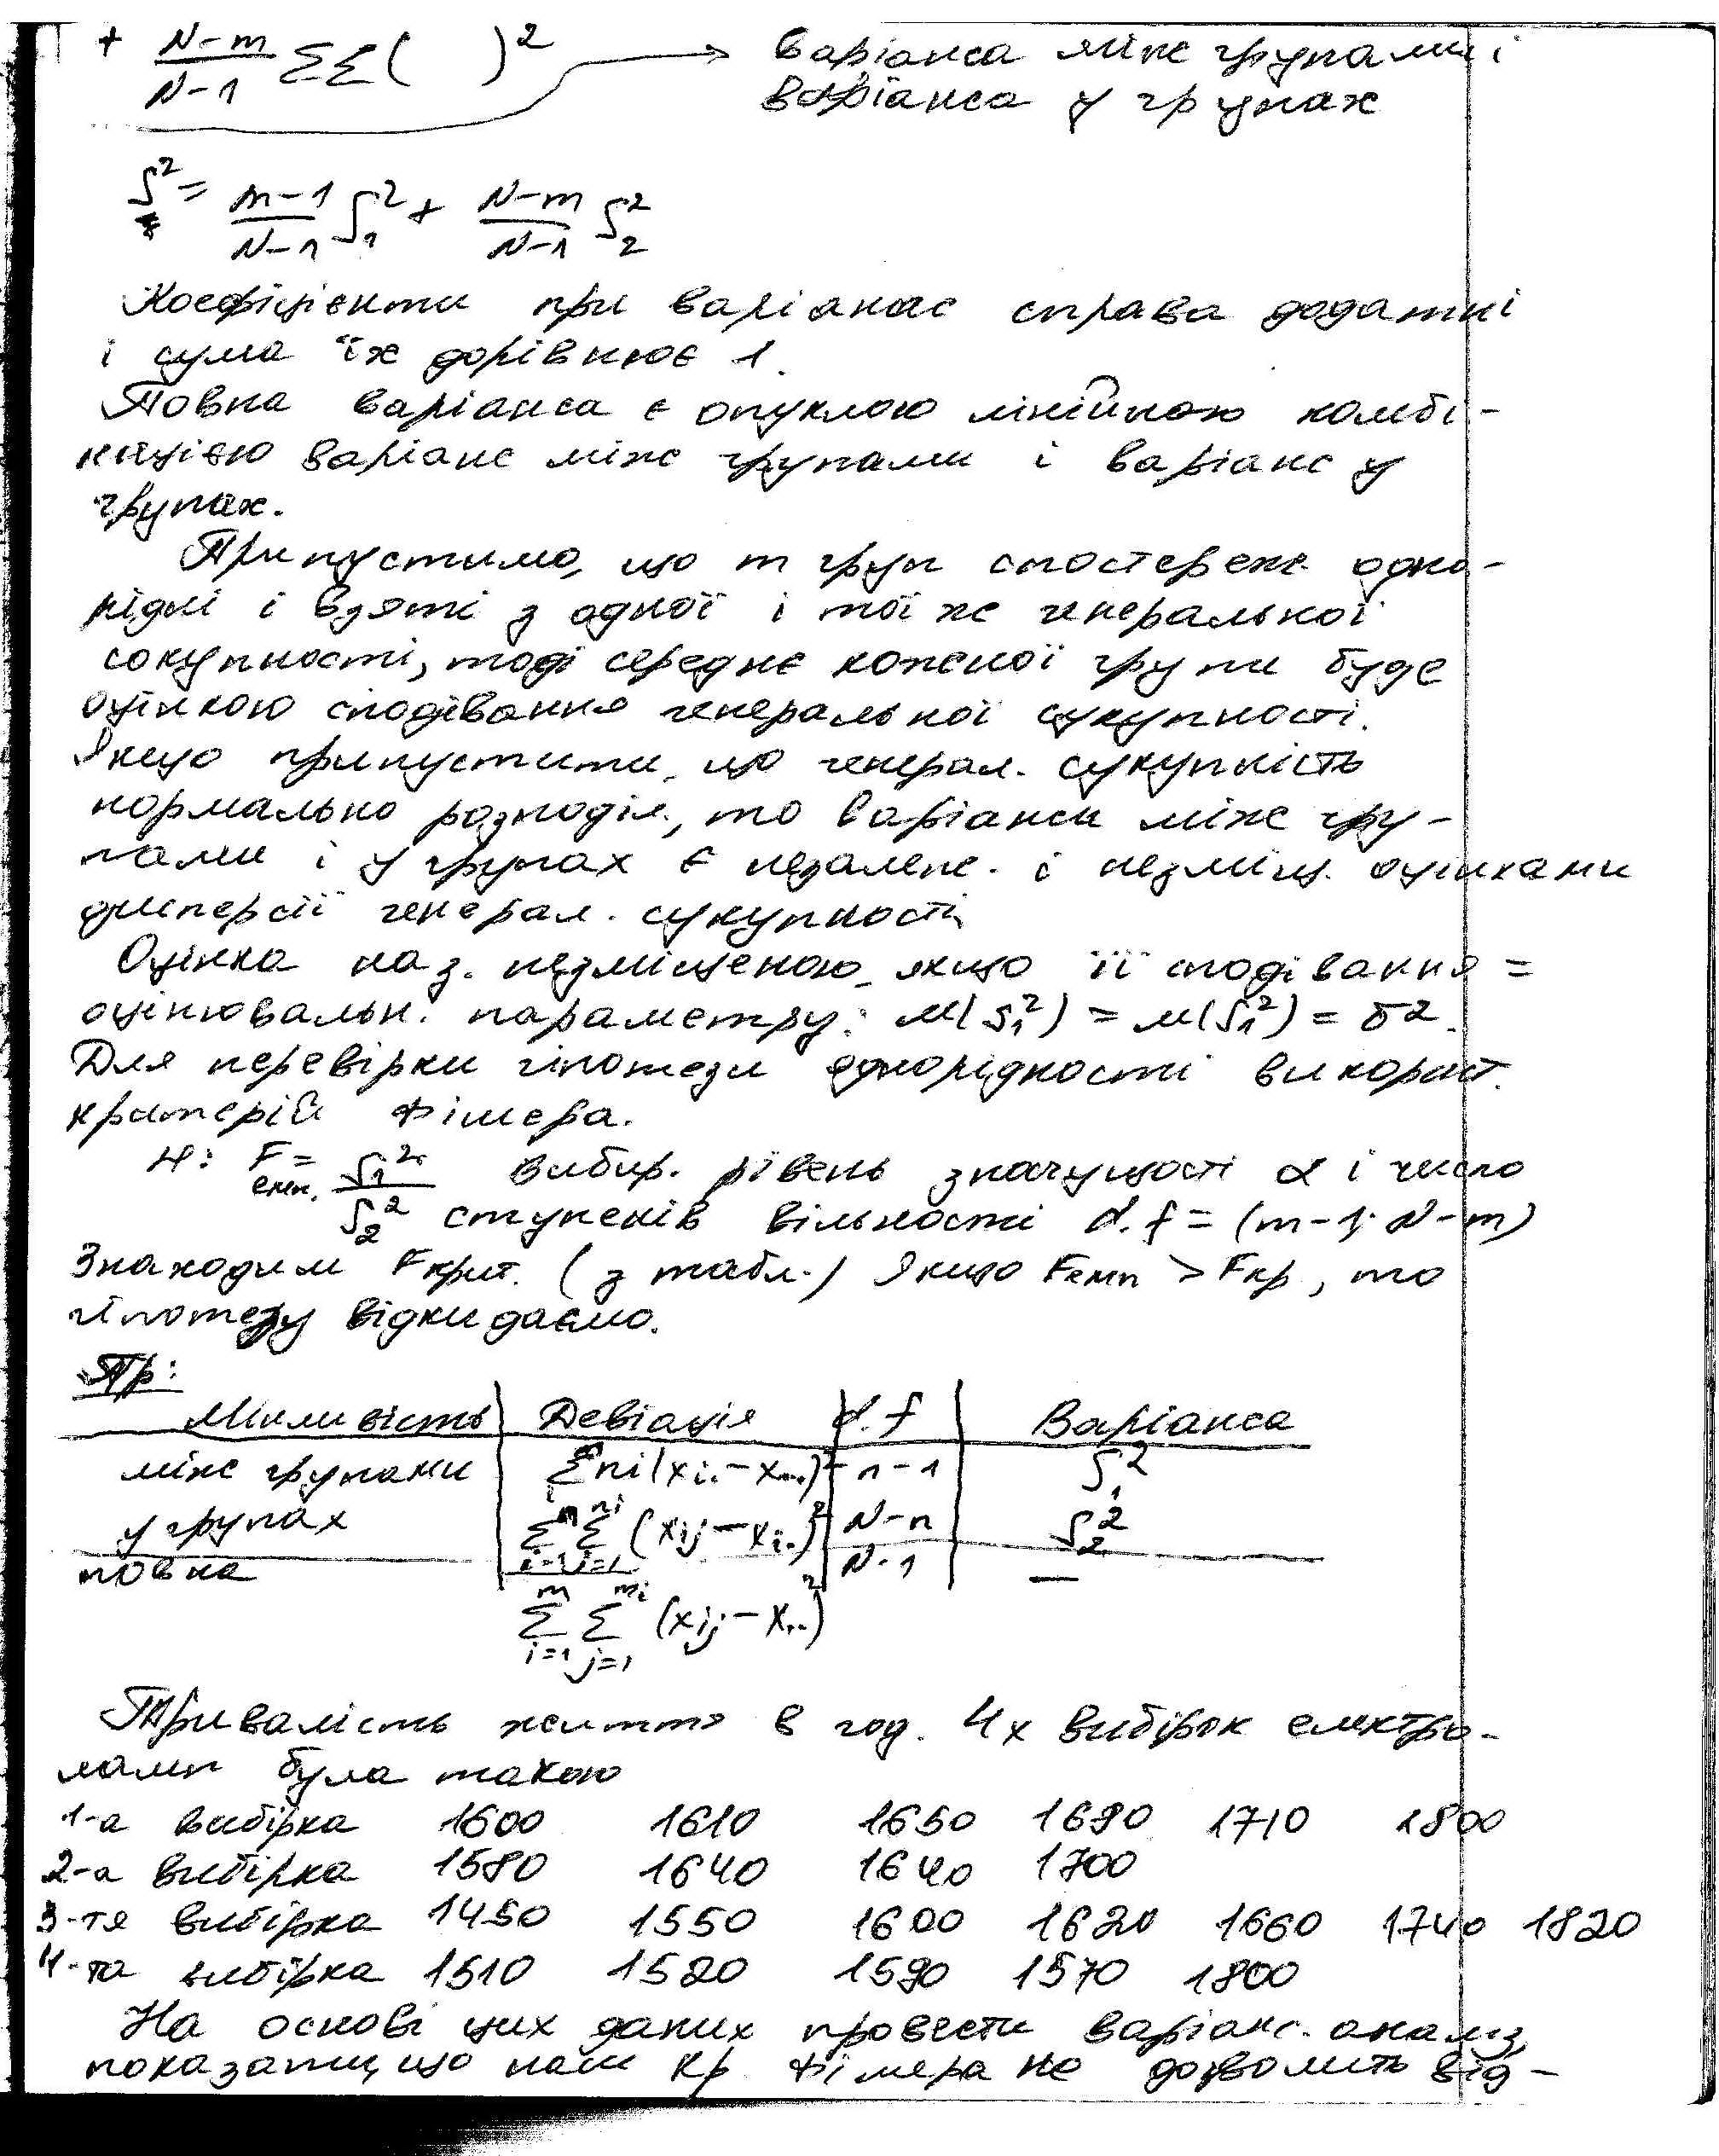 + N-m/N-1 ΣΣ( )² → варіанса між групами і
варіанса у групах
S² = m-1/N-1 S₁² + N-m/N-1 S₂²
Коефіцієнти при варіанс справа додатні
і сума їх дорівнює 1.
Повна варіанса є опуклою лінійною комбі-
нацією варіанс між групами і варіанс у
групах.
Припустимо, що m груп спостереж. одно-
рідні і взяті з одної і тої же генеральної
сокупності, тоді середнє кожної групи буде
оцінкою сподівання генеральної сукупності.
Якщо припустити, що генерал. сукупність
нормально розподіл., то варіанси між гру-
пами і у групах є незалеж. і незміщ. оцінками
дисперсії генерал. сукупності
Оцінка наз. незміщеною, якщо її сподівання =
оцінювальн. параметру: M(S₁²) = M(S₁²) = σ².
Для перевірки гіпотези однорідності використ.
критерій Фішера.
H: F емп. = S₁²/S₂² вибир. рівень значущості α і число
ступенів вільності d.f = (m-1; N-m)
Знаходим Fкрит. (з табл.) Якщо Fемп > Fкр, то
гіпотезу відкидаємо.
Пр:
Мінливість Девіація d.f Варіанса
між групами Σni(xi. - x..)² n-1 S₁²
у групах ΣΣ (xij - xi.)² N-n S₂²
повна ΣΣ (xij - x..)² N-1 —
Тривалість життя в год. 4х вибірок електро-
ламп була такою
1-а вибірка 1600 1610 1650 1680 1710 1800
2-а вибірка 1580 1640 1640 1700
3-тя вибірка 1450 1550 1600 1620 1660 1740 1820
4-та вибірка 1510 1520 1590 1570 1800
На основі цих даних провести варіанс. аналіз,
показати, що наш кр Фішера не дозволить від-